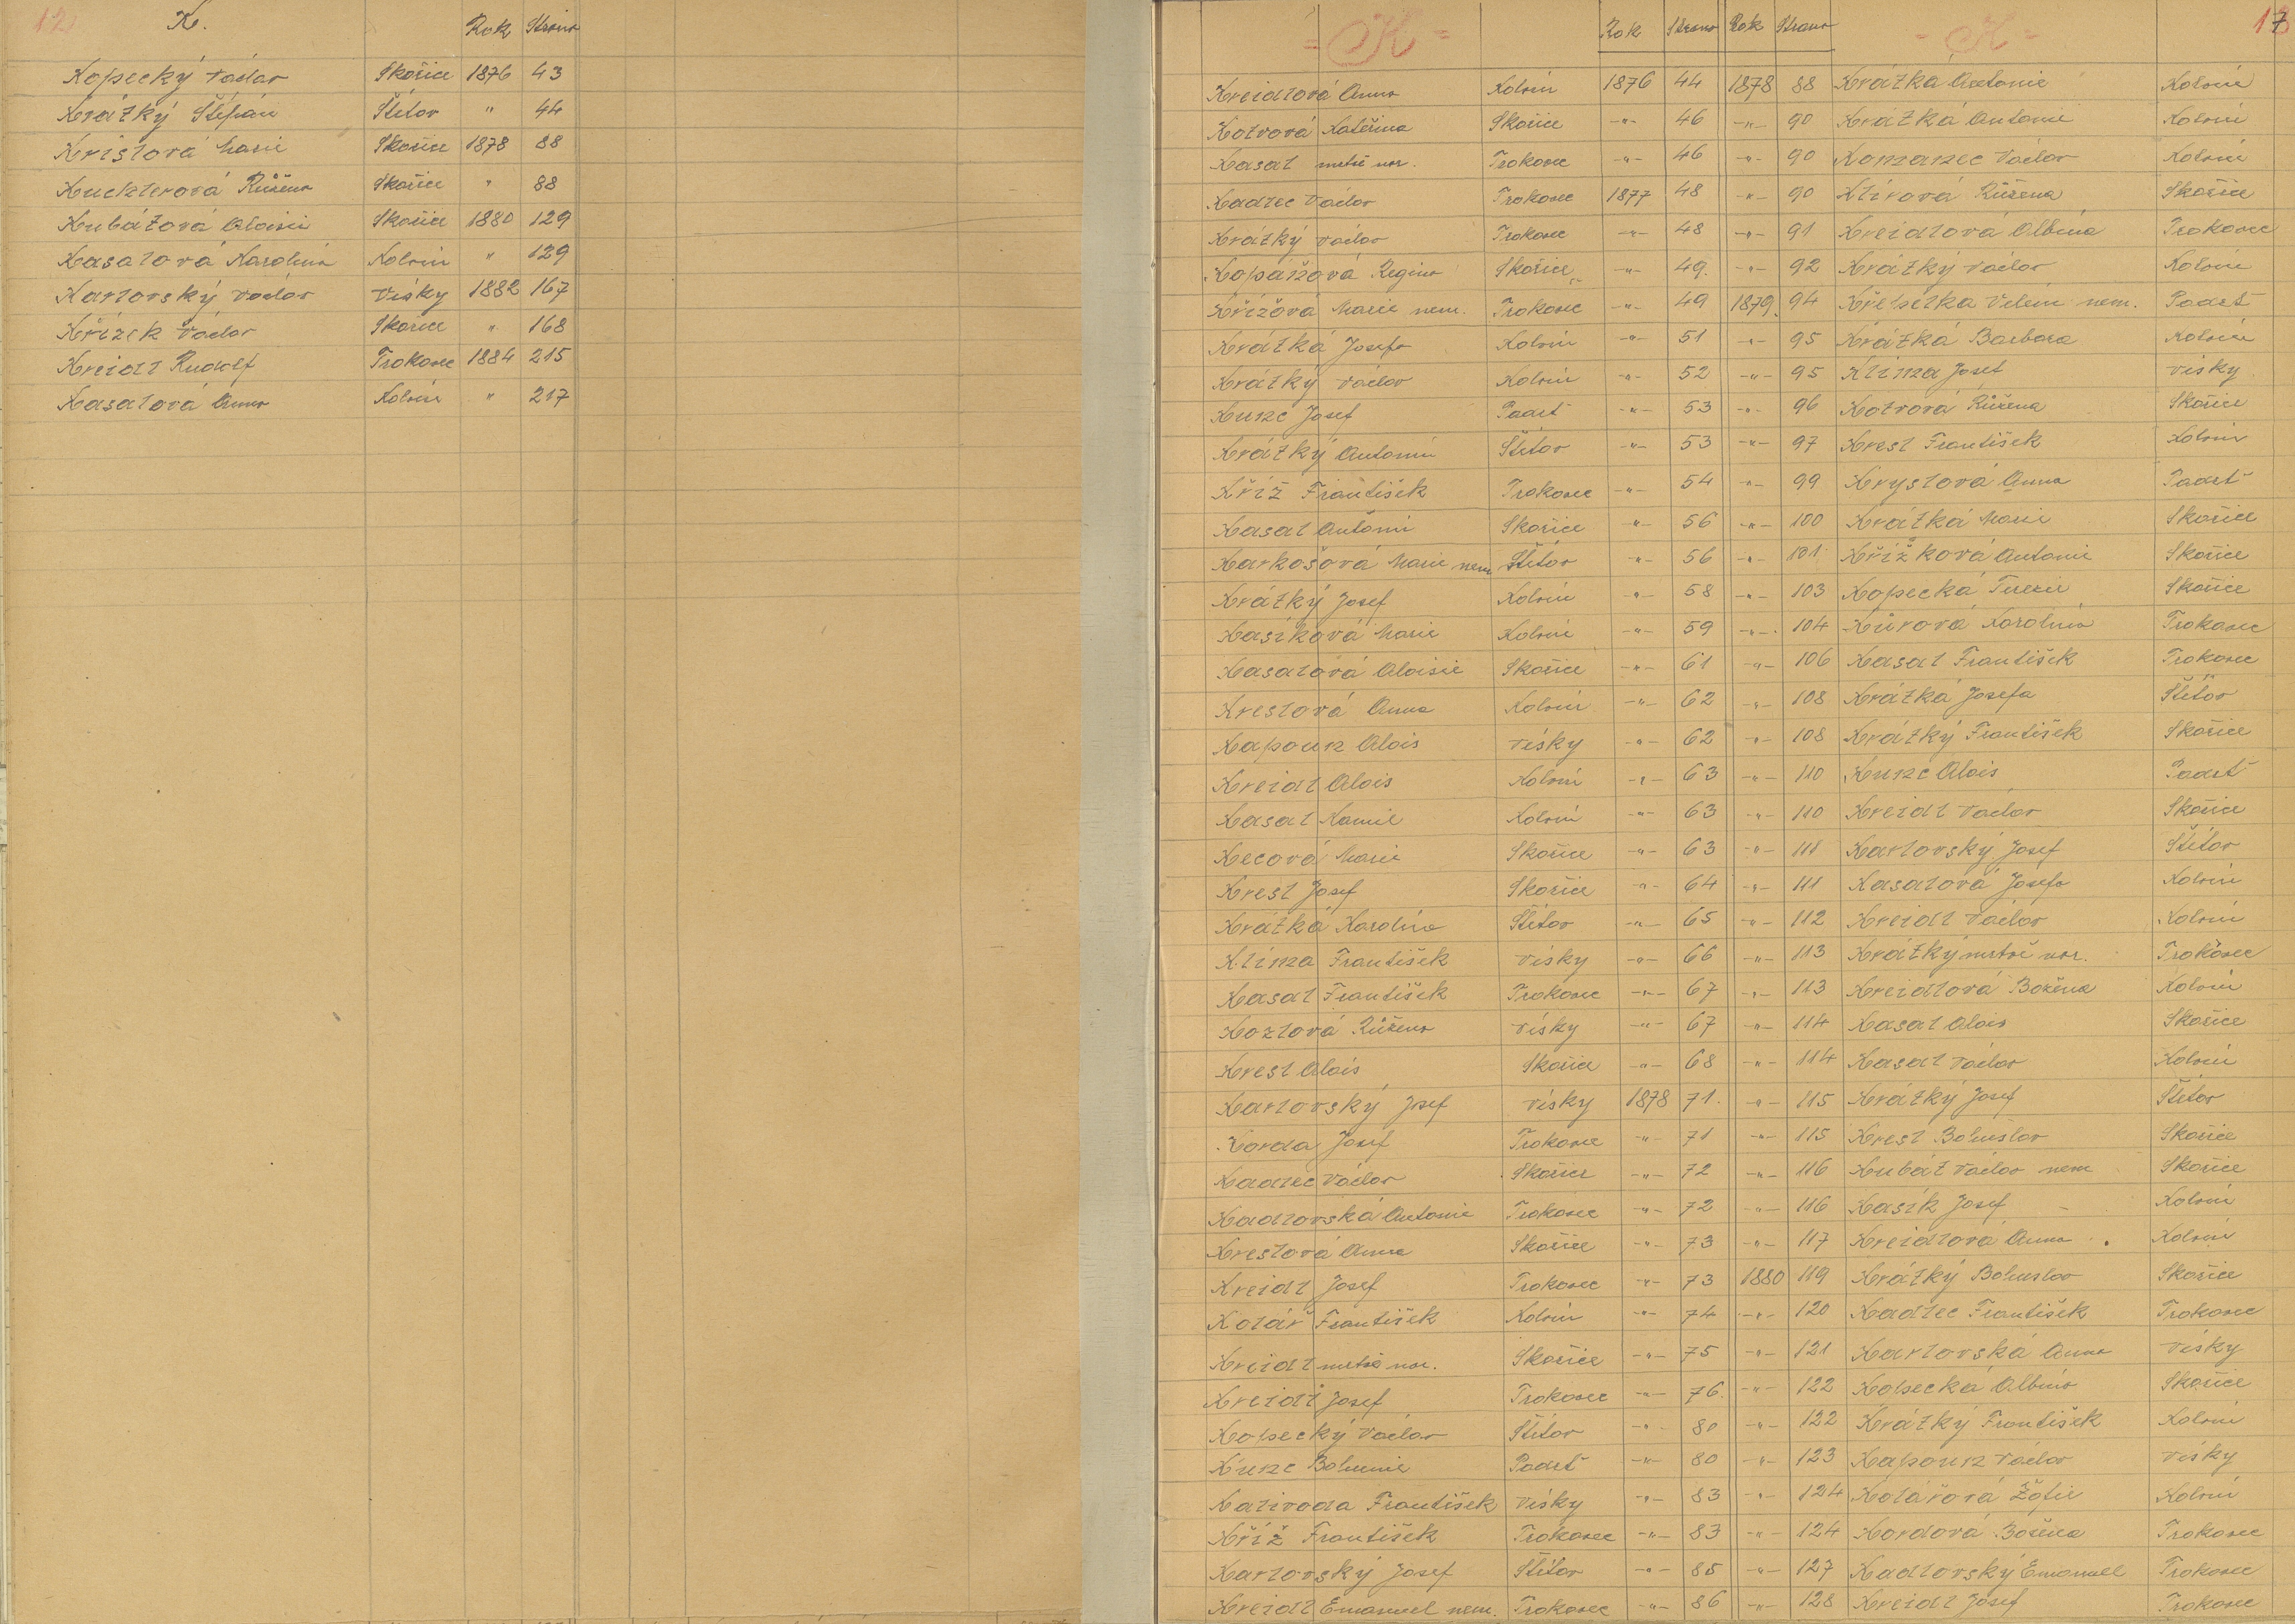 12 K. Rok Strana
Kopecký Václav Skořice 1876 43
Krátký Štěpán Štítov " 44
Kristová Marie Skořice 1878 88
Kuchlerová Růžena Skořice " 88
Kubátová Aloisie Skořice 1880 129
Kasalová Karolina Kolvín " 129
Karlovský Václav Vísky 1882 167
Křížek Václav Skořice " 168
Kreidl Rudolf Trokavec 1884 215
Kasalová Anna Kolvín " 217
= K = Rok Strana Rok Strana - K - 17
Kreidlová Anna Kolvín 1876 44 1878 88 Krátká Antonie Kolvín
Kotrová Kateřina Skořice -"- 46 -"- 90 Krátká Antonie Kolvín
Kasal mrtvě nar. Trokavec -"- 46 -"- 90 Komanec Václav Kolvín
Kadlec Václav Trokavec 1877 48 -"- 90 Klírová Růžena Skořice
Krátký Václav Trokavec -"- 48 -"- 91 Kreidlová Albína Trokavec
Kopářová Regina Skořice -"- 49. -"- 92 Krátký Václav Kolvín
Křížová Marie nem. Trokavec -"- 49 1879. 94 Křepelka Vilém nem. Padrť
Krátká Josefa Kolvín -"- 51 -"- 95 Krátká Barbora Kolvín
Krátký Václav Kolvín -"- 52 -"- 95 Klíma Josef Vísky
Kunc Josef Padrť -"- 53 -"- 96 Kotrová Růžena Skořice
Krátký Antonín Štítov -"- 53 -"- 97 Kresl František Kolvín
Kříž František Trokavec -"- 54 -"- 99 Kryslová Anna Padrť
Kasal Antonín Skořice -"- 56 -"- 100 Krátká Marie Skořice
Karkošová Marie nem Štítov -"- 56 -"- 101 Křížková Antonie Skořice
Krátký Josef Kolvín -"- 58 -"- 103 Kopecká Terezie Skořice
Kasíková Marie Kolvín -"- 59 -"- 104 Kůrová Karolina Trokavec
Kasalová Aloisie Skořice -"- 61 -"- 106 Kasal František Trokavec
Kreslová Anna Kolvín -"- 62 -"- 108 Krátká Josefa Štítov
Kapoun Alois Vísky -"- 62 -"- 108 Krátký František Skořice
Kreidl Alois Kolvín -"- 63 -"- 110 Kunc Alois Padrť
Kasal Kamil Kolvín -"- 63 -"- 110 Kreidl Václav Skořice
Kecová Marie Skořice -"- 63 -"- 111 Karlovský Josef Štítov
Kresl Josef Skořice -"- 64 -"- 111 Kasalová Josefa Kolvín
Krátká Karolina Štítov -"- 65 -"- 112 Kreidl Václav Kolvín
Klíma František Vísky -"- 66 -"- 113 Krátký mrtvě nar. Trokavec
Kasal František Trokavec -"- 67 -"- 113 Kreidlová Božena Kolvín
Kozlová Růžena Vísky -"- 67 -"- 114 Kasal Alois Skořice
Kresl Alois Skořice -"- 68 -"- 114 Kasal Václav Kolvín
Karlovský Josef Vísky 1878 71. -"- 115 Krátký Josef Štítov
Korda Josef Trokavec -"- 71 -"- 115 Kresl Bohuslav Skořice
Kadlec Václav Skořice -"- 72 -"- 116 Kubát Václav nem Skořice
Kadlovská Antonie Trokavec -"- 72 -"- 116 Kasík Josef Kolvín
Kreslová Anna Skořice -"- 73 -"- 117 Kreidlová Anna Kolvín
Kreidl Josef Trokavec -"- 73 1880 119 Krátký Bohuslav Skořice
Kolář František Kolvín -"- 74 -"- 120 Kadlec František Trokavec
Kreidl mrtvě nar. Skořice -"- 75 -"- 121 Karlovská Anna Vísky
Kreidl Josef Trokavec -"- 76. -"- 122 Kopecká Albína Skořice
Kopecký Václav Štítov -"- 80 -"- 122 Krátký František Kolvín
Kunc Bohumil Padrť -"- 80 -"- 123 Kapoun Václav Vísky
Kalivoda František Vísky -"- 83 -"- 124 Kolářová Žofie Kolvín
Kříž František Trokavec -"- 83 -"- 124 Kordová Božena Trokavec
Karlovský Josef Štítov -"- 85 -"- 127 Kadlovský Emanuel Trokavec
Kreidl Emanuel nem. Trokavec -"- 86 -"- 128 Kreidl Josef Trokavec